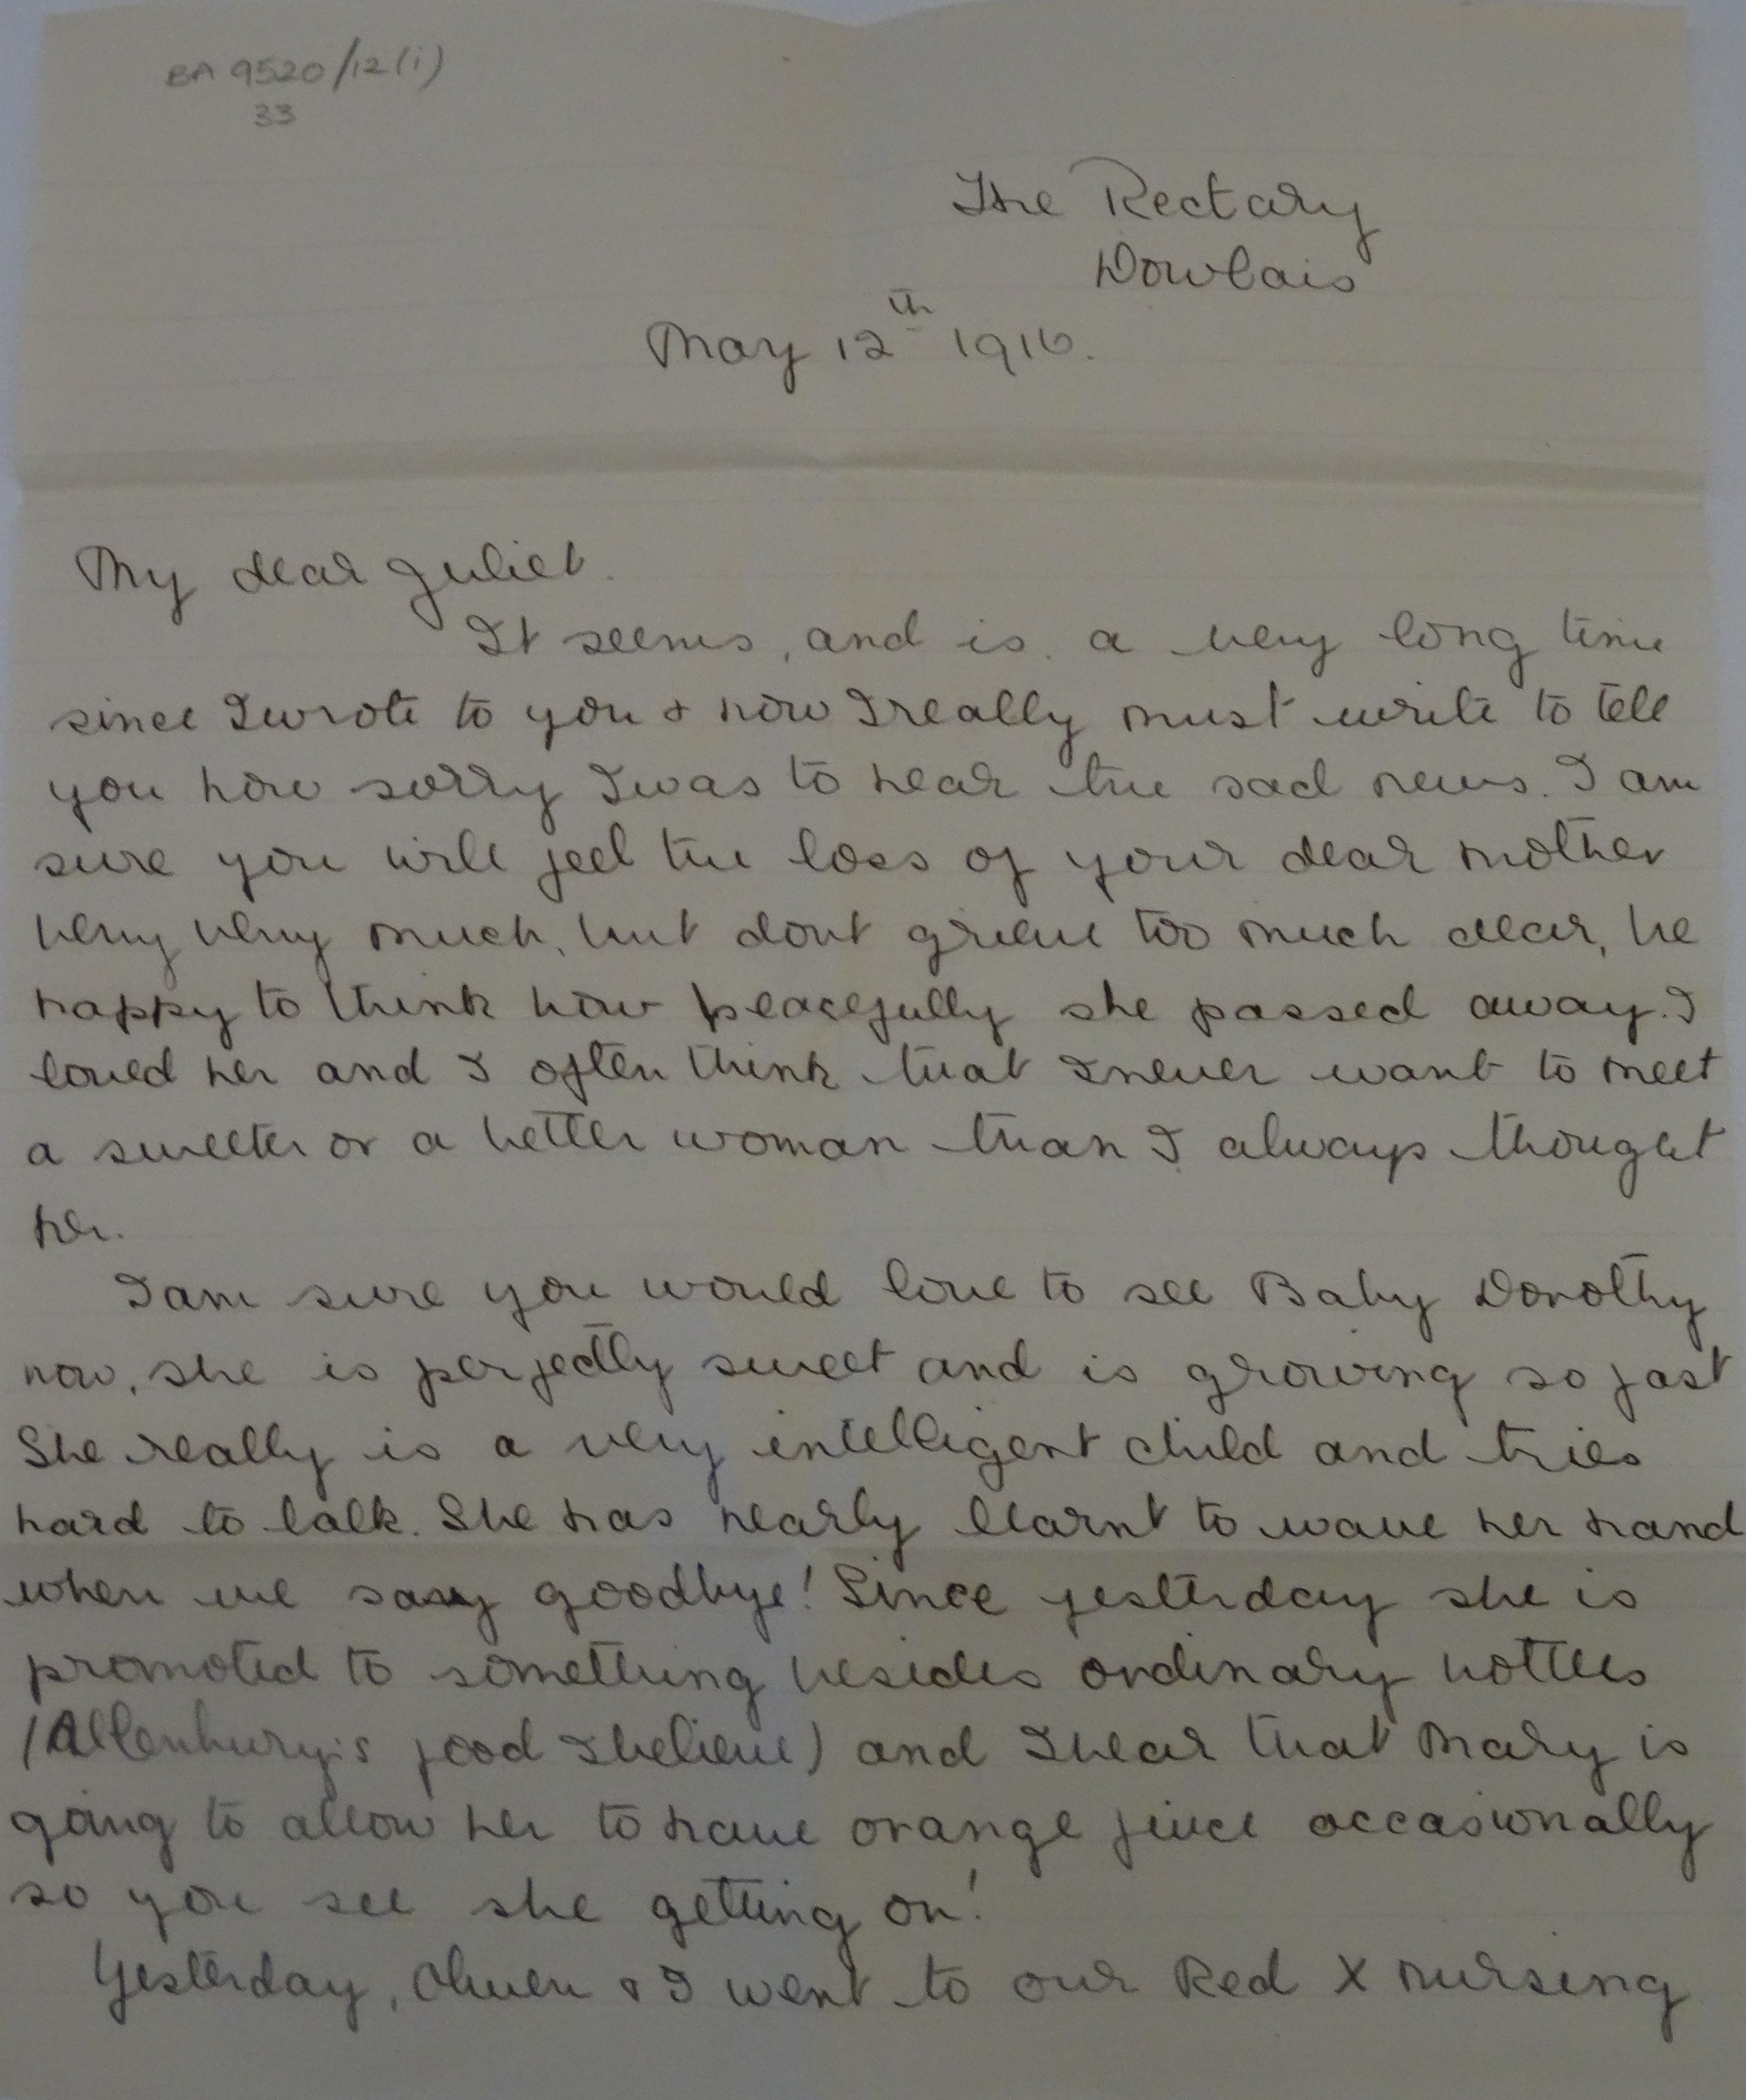 BA 9520/12(i)
33
The Rectory
Dowlais
May 12th 1916.
My dear Juliet.
It seems, and is, a very long time
since I wrote to you & now I really must write to tell
you how sorry I was to hear the sad news. I am
sure you will feel the loss of your dear mother
very very much, but dont grieve too much dear, be
happy to think how peacefully she passed away. I
loved her and I often think that I never want to meet
a sweeter or a better woman than I always thought
her.
I am sure you would love to see Baby Dorothy
now, she is perfectly sweet and is growing so fast
She really is a very intelligent child and tries
hard to talk. She has nearly learnt to wave her hand
when we say goodbye! Since yesterday she is
promoted to something besides ordinary bottles
(Allenbury's food I believe) and I hear that Mary is
going to allow her to have orange juice occasionally
so you see she getting on!
Yesterday, Olwen & I went to our Red X nursing